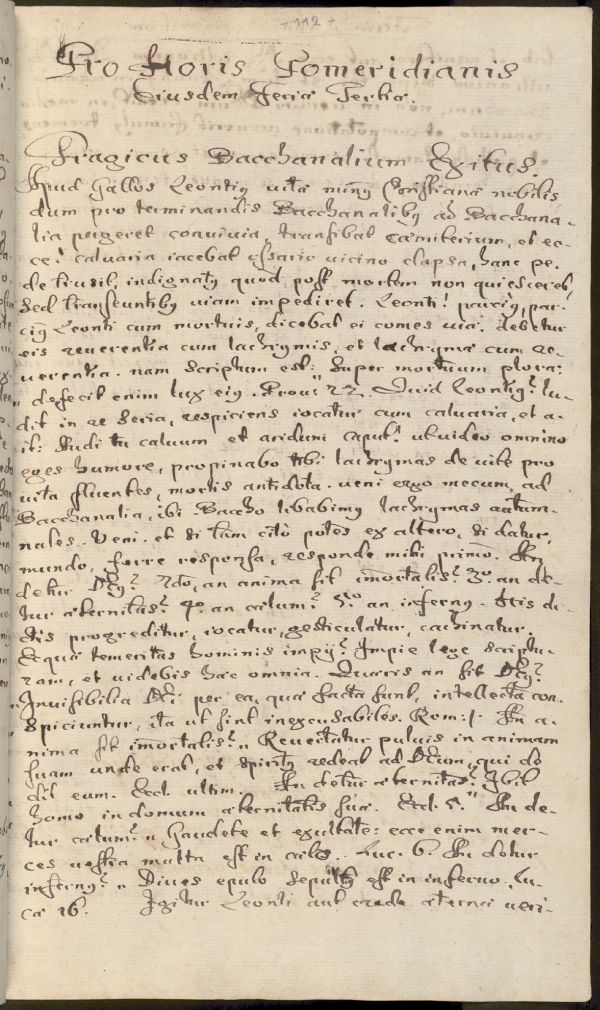 - 112 -
Pro Horis Pomeridianis
Eiusdem Feriæ Tertiæ.
Tragicus Bacchanalium Exitus.
Apud Gallos Leontiꝰ vitâ minꝰ Christianâ nobilis
dum pro terminandis Bacchanalibꝰ ad Bacchana-
lia pergeret convivia, transibat cæmiterium, et ec-
ce! calvaria iacebat ossario vicino elapsa, hanc pe-
de trusit, indignatꝰ quod post mortem non quiesceret,
sed transeuntibꝰ viam impediret. Leonti! parciꝰ, par-
ciꝰ Leonti cum mortuis, dicebat ei comes viæ. debetur
eis reverentia cum lachrymis, et lachrymæ cum re-
verentia. nam scriptum est: super mortuum plora:
" defecit enim lux eiꝰ. Prov: 22. Quid Leontiꝰ? lu-
dit in re seria, respiciens iocatur cum calvaria, et a-
it: Audi tu calvum et aridum caput! ut video omnino
eges humore, propinabo tibi lachrymas de vite pro
vita fluentes, mortis antidota. veni ergo mecum ad
Bacchanalia, ibi Baccho libabimꝰ lachrymas autum-
nales. Veni. et si tam citò potes ex altero, si datur,
mundo, ferre responsa, responde mihi primò. An
detur Dꝰ? 2do, an anima sit imortalis? 3o. an de-
tur æternitas? 4o an cælum? 5o. an infernꝰ. His di-
ctis progreditur, iocatur, gesticulatur, cachinatur.
Ecquæ temeritas hominis impij? Impie lege scriptu-
ram, et videbis hæc omnia. Quæris an sit Dꝰ?
Invisibilia Dei per ea, quæ facta sunt, intellecta con-
spiciuntur, ita ut sint inexcusabiles. Rom: 1. An a-
nima sit imortalis? " Revertatur pulvis in
suam unde erat, et spiritꝰ redeat ad Deum, qui de-
dit eum. Eccl. ultim. An detur æternitas? Ibit
homo in domum æternitatis suæ. Eccl. 5. " An de-
tur cælum? " Gaudete et exultate: ecce enim mer-
ces vestra multa est in cælis. Luc. 6. An detur
infernꝰ? " Dives epulo sepultꝰ est in inferno. Lu-
cæ 16. Igitur Leonti aut crede æternæ veri-